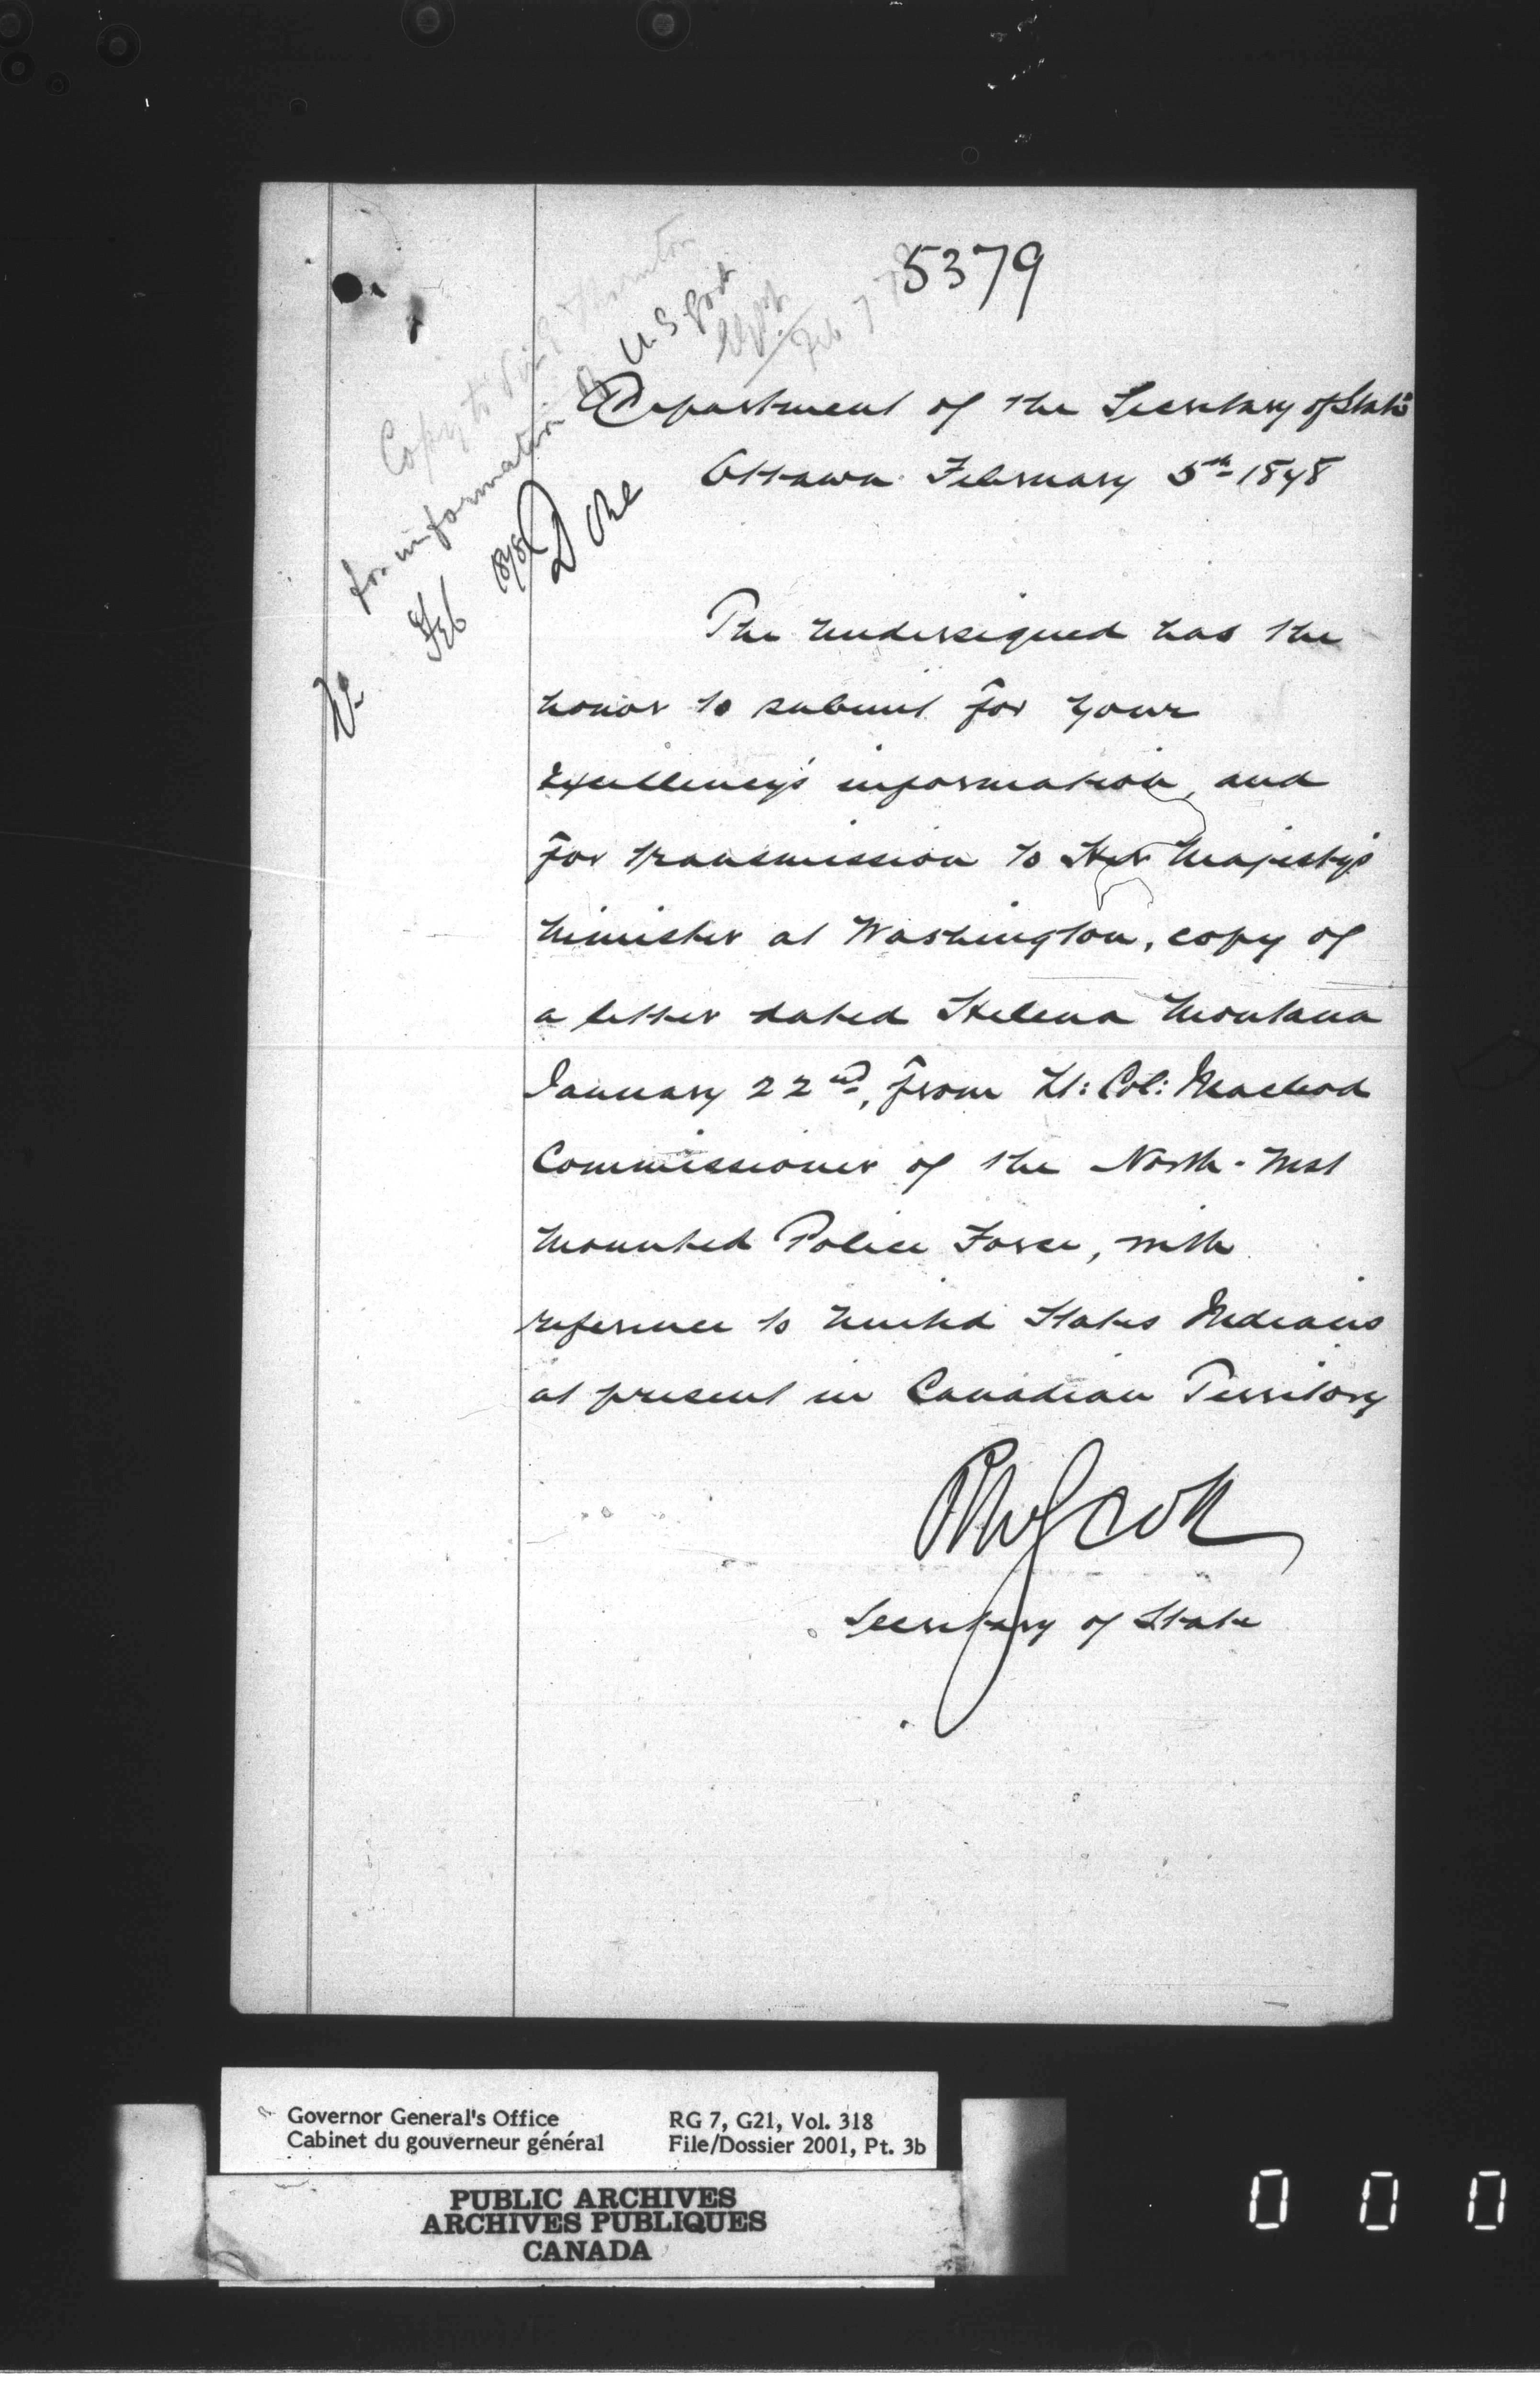 5379
Copy to Sir E Thornton
for information of U.S. Govt
Feb 7 78
Done
Feb 1878
Department of the Secretary of State
Ottawa February 5th 1878
The Undersigned has the
honor to submit for Your
Excellency's information, and
for transmission to Her Majesty's
Minister at Washington, copy of
a letter dated Helena Montana
January 22nd, from Lt: Col: Macleod
Commissioner of the North-West
Mounted Police Force, with
reference to United States Indians
at present in Canadian Territory
RWScott
Secretary of State
Governor General's Office
Cabinet du gouverneur général
RG 7, G21, Vol. 318
File/Dossier 2001, Pt. 3b
PUBLIC ARCHIVES
ARCHIVES PUBLIQUES
CANADA
0 0 0